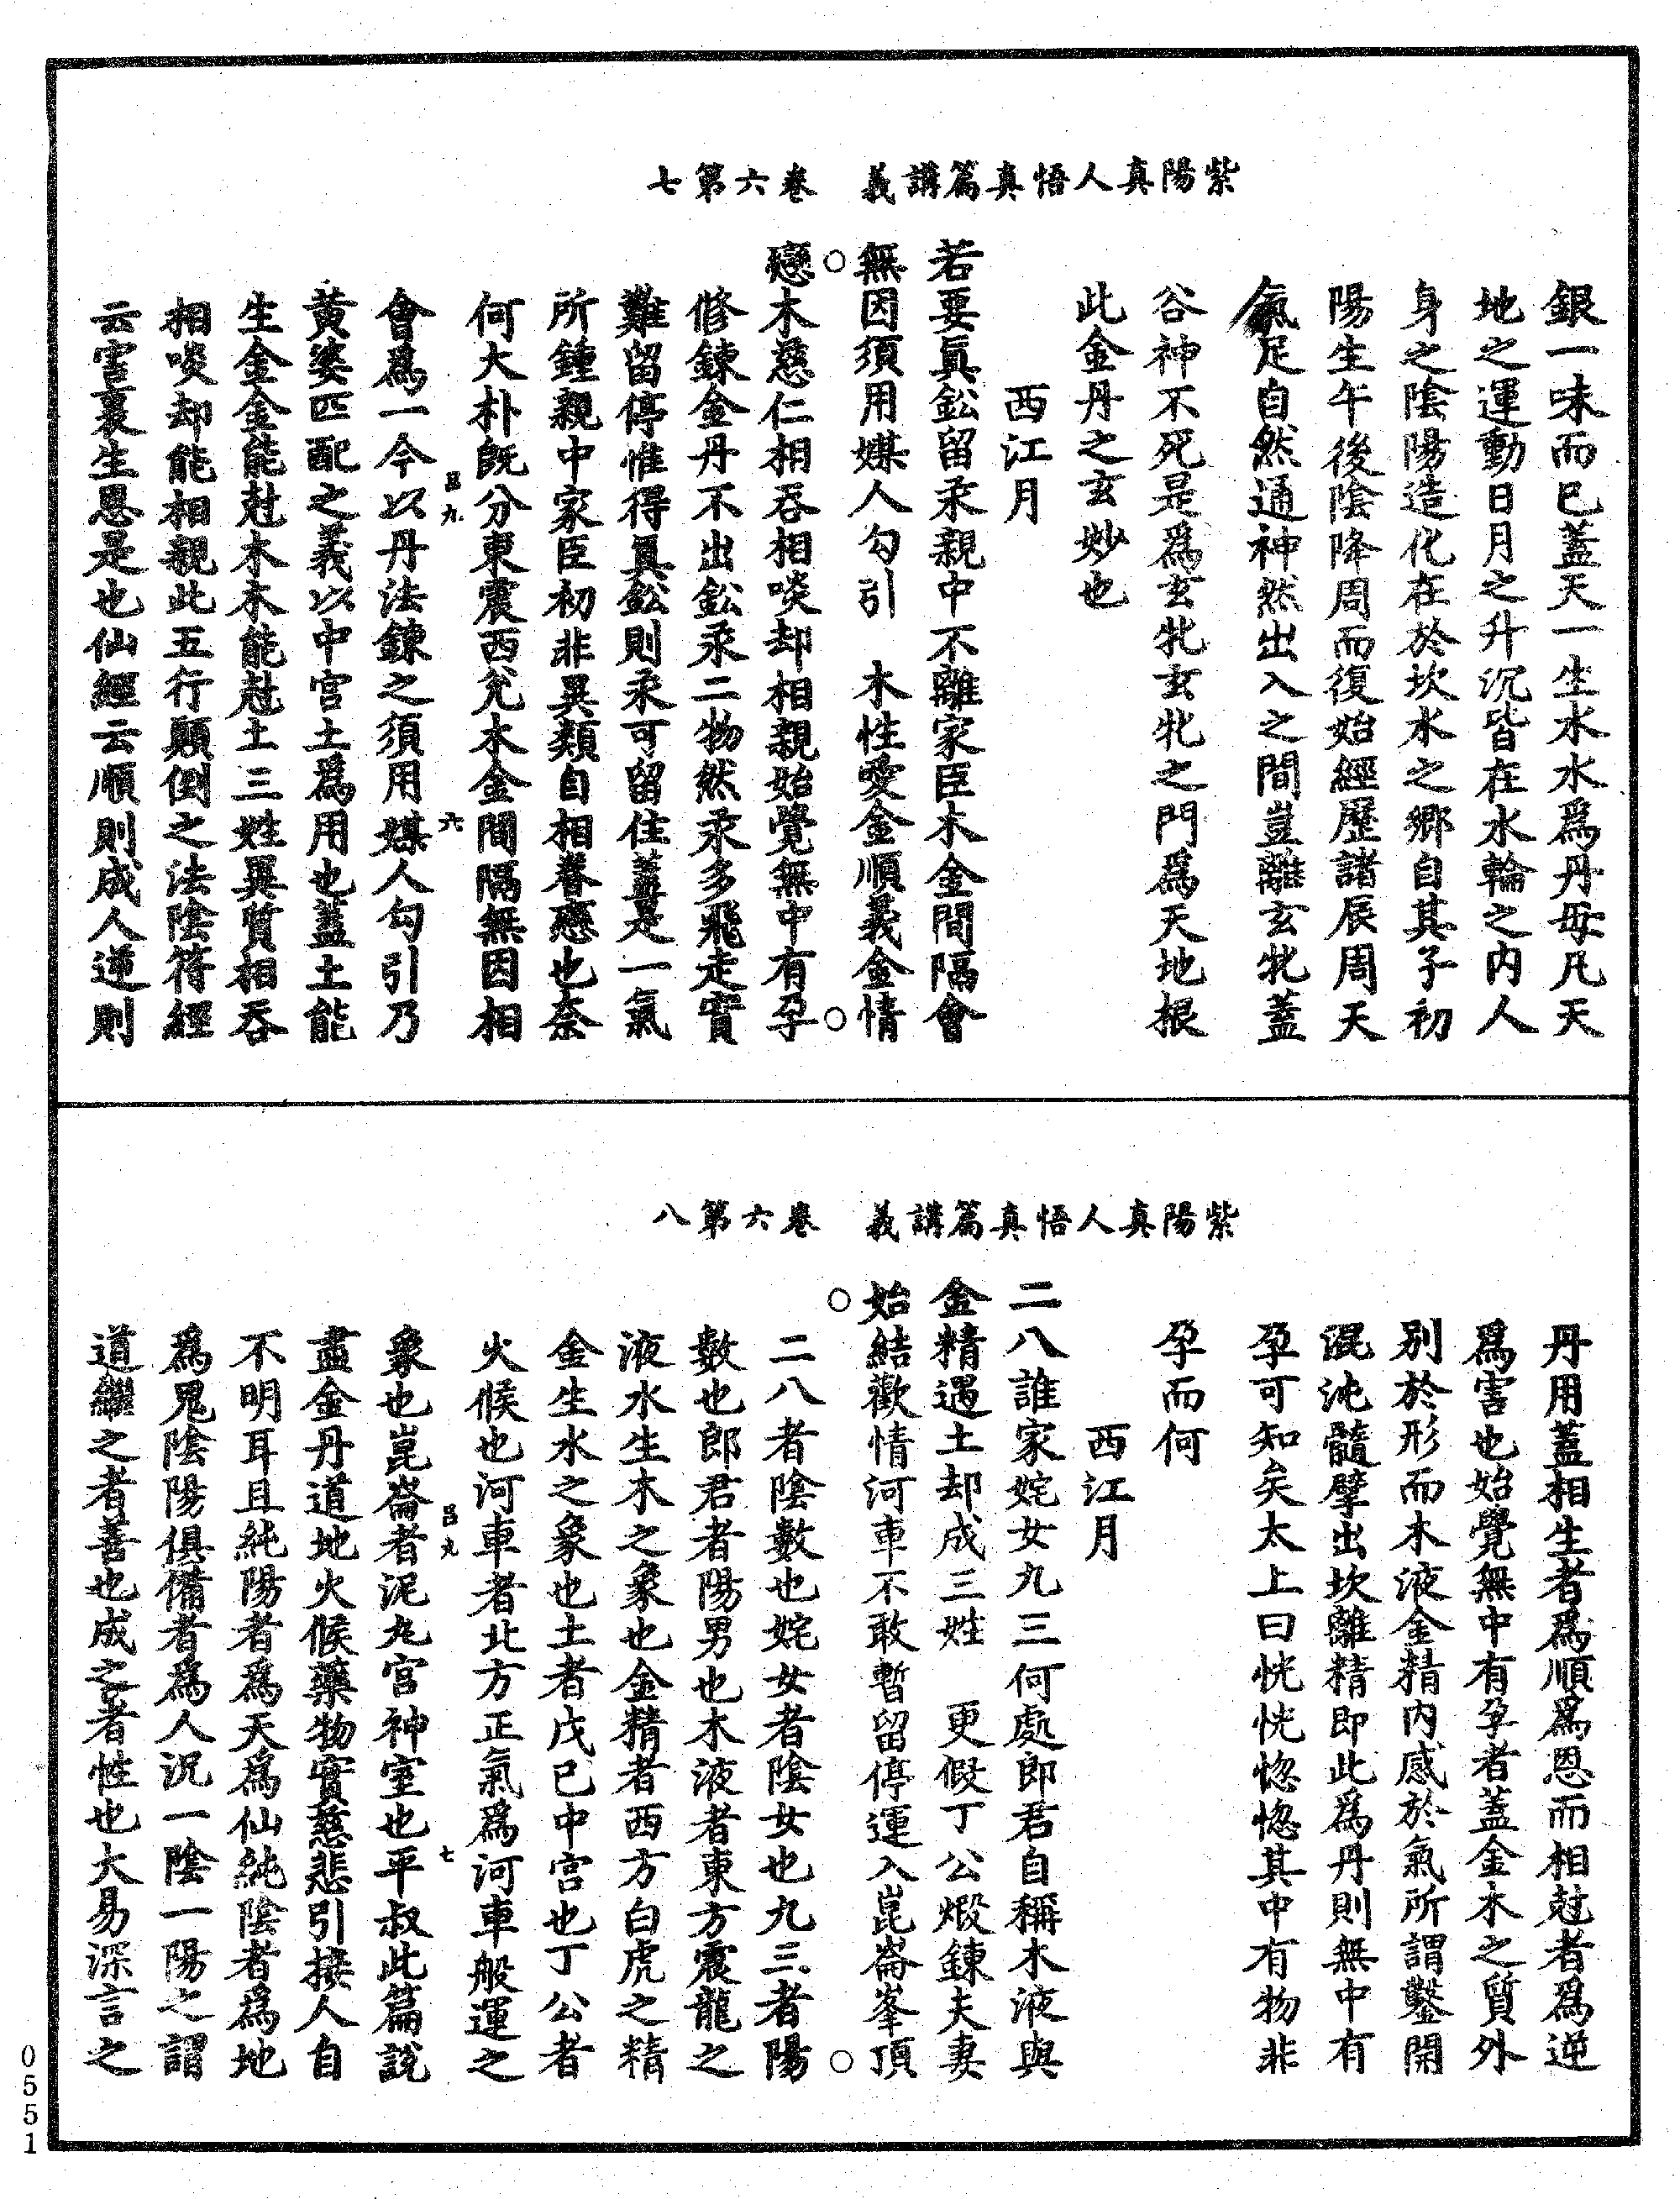 紫陽真人悟真篇講義　卷六第七
銀一味而已蓋天一生水水爲丹母凡天
地之運動日月之升沉皆在水輪之内人
身之陰陽造化在於坎水之郷自其子初
陽生午後陰降周而復始經歷諸辰周天
氣足自然通神然出入之間豈離玄牝蓋
谷神不死是爲玄牝玄牝之門爲天地根
此金丹之玄妙也
西江月
若要真鈆留汞親中不離家臣木金間隔會
無因須用媒人勾引　木性愛金順義金情
戀木慈仁相吞相啖却相親始覺無中有孕
修鍊金丹不出鈆汞二物然汞多飛走實
難留停惟得真鈆則汞可留住蓋是一氣
所鍾親中家臣初非異類自相眷戀也柰
何大朴既分東震西兊木金間隔無因相
會爲一今以丹法鍊之須用媒人勾引乃
黄婆匹配之義以中宫土爲用也蓋土能
生金金能尅木木能尅土三姓異質相吞
相啖却能相親此五行顛倒之法陰符經
云害裏生恩是也仙經云順則成人逆則
九
六
紫陽真人悟真篇講義　卷六第八
丹用蓋相生者爲順爲恩而相尅者爲逆
爲害也始覺無中有孕者蓋金木之質外
别於形而木液金精内感於氣所謂鑿開
混沌髓擘出坎離精即此爲丹則無中有
孕可知矣太上曰恍恍惚惚其中有物非
孕而何
西江月
二八誰家姹女九三何處郎君自稱木液與
金精遇土却成三姓　更假丁公煅鍊夫妻
始結歡情河車不敢暫留停運入崑崙峯頂
二八者陰數也姹女者陰女也九三者陽
數也郎君者陽男也木液者東方震龍之
液水生木之象也金精者西方白虎之精
金生水之象也土者戊已中宫也丁公者
火候也河車者北方正氣爲河車般運之
象也崑崙者泥丸宫神室也平叔此篇説
盡金丹道地火候藥物實慈悲引接人自
不明耳且純陽者爲天爲仙純陰者爲地
爲鬼陰陽俱備者爲人況一陰一陽之謂
道繼之者善也成之者性也大易深言之
七
0551